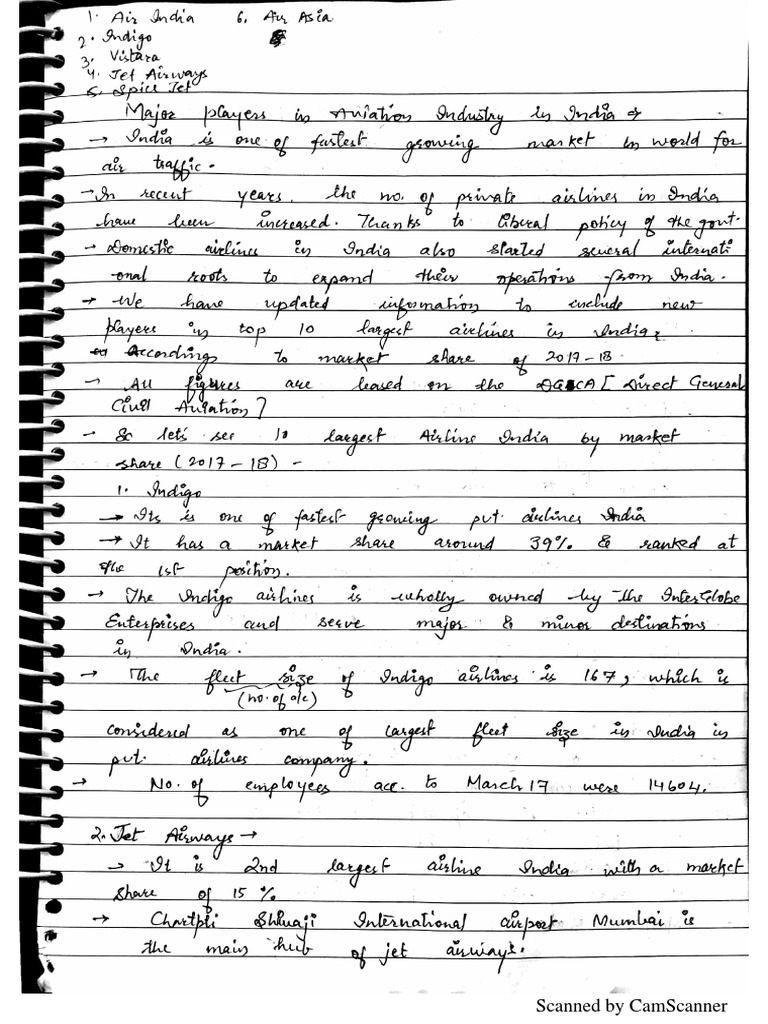 1. Air India 6. Air Asia
2. Indigo
3. Vistara
4. Jet Airways
5. Spice Jet
Major players in Aviation Industry in India
→ India is one of fastest growing market in world for
air traffic.
→ In recent years, the no. of private airlines in India
have been increased. Thanks to liberal policy of the govt.
→ Domestic airlines in India also started several internati
onal roots to expand their operations from India.
→ We have updated information to include new
players in top 10 largest airlines in India,
Accordings to market share of 2017-18.
→ All figures are based on the DGCA [Direct General
Civil Aviation]
→ So lets see 10 largest Airline India by market
share (2017-18) -
1. Indigo
→ Its is one of fastest growing pvt. airlines India
→ It has a market share around 39% & ranked at
the 1st position.
→ The Indigo airlines is wholly owned by the InterGlobe
Enterprises and serve major & minor destinations
in India.
→ The fleet size of Indigo airlines is 167, which is
(no. of a/c)
considered as one of largest fleet size in India in
pvt. airlines company.
→ No. of employees acc. to March 17 were 14604.
2. Jet Airways →
→ It is 2nd largest airline India with a market
share of 15%
→ Chartpti Shivaji International airport Mumbai is
the main hub of jet airways.
Scanned by CamScanner